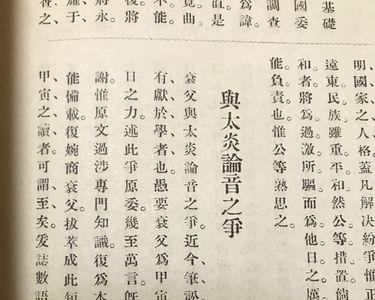 基礎
國委
調查
爲諱。
直是
覓曲。
不能。
後將
將永。
耀于、
之、
明國家之人格。蓋凡解決紛爭惟正
遠東民族。雖重平和。然公等措置倘
和者。將爲過激所驅。而爲他日之厲
能負責也。惟公等熟思之。
與太炎論音之爭
袞父與太炎論音之爭。近今筆訟、
有獻於學者也。愚要袞父爲甲寅
日之力。述此爭原委。幾至萬言。旣
謝。惟原文過涉專門知識。復爲本
能備載。復婉商袞父。拔萃成此短
甲寅之讀者可謂至矣。爰誌數語